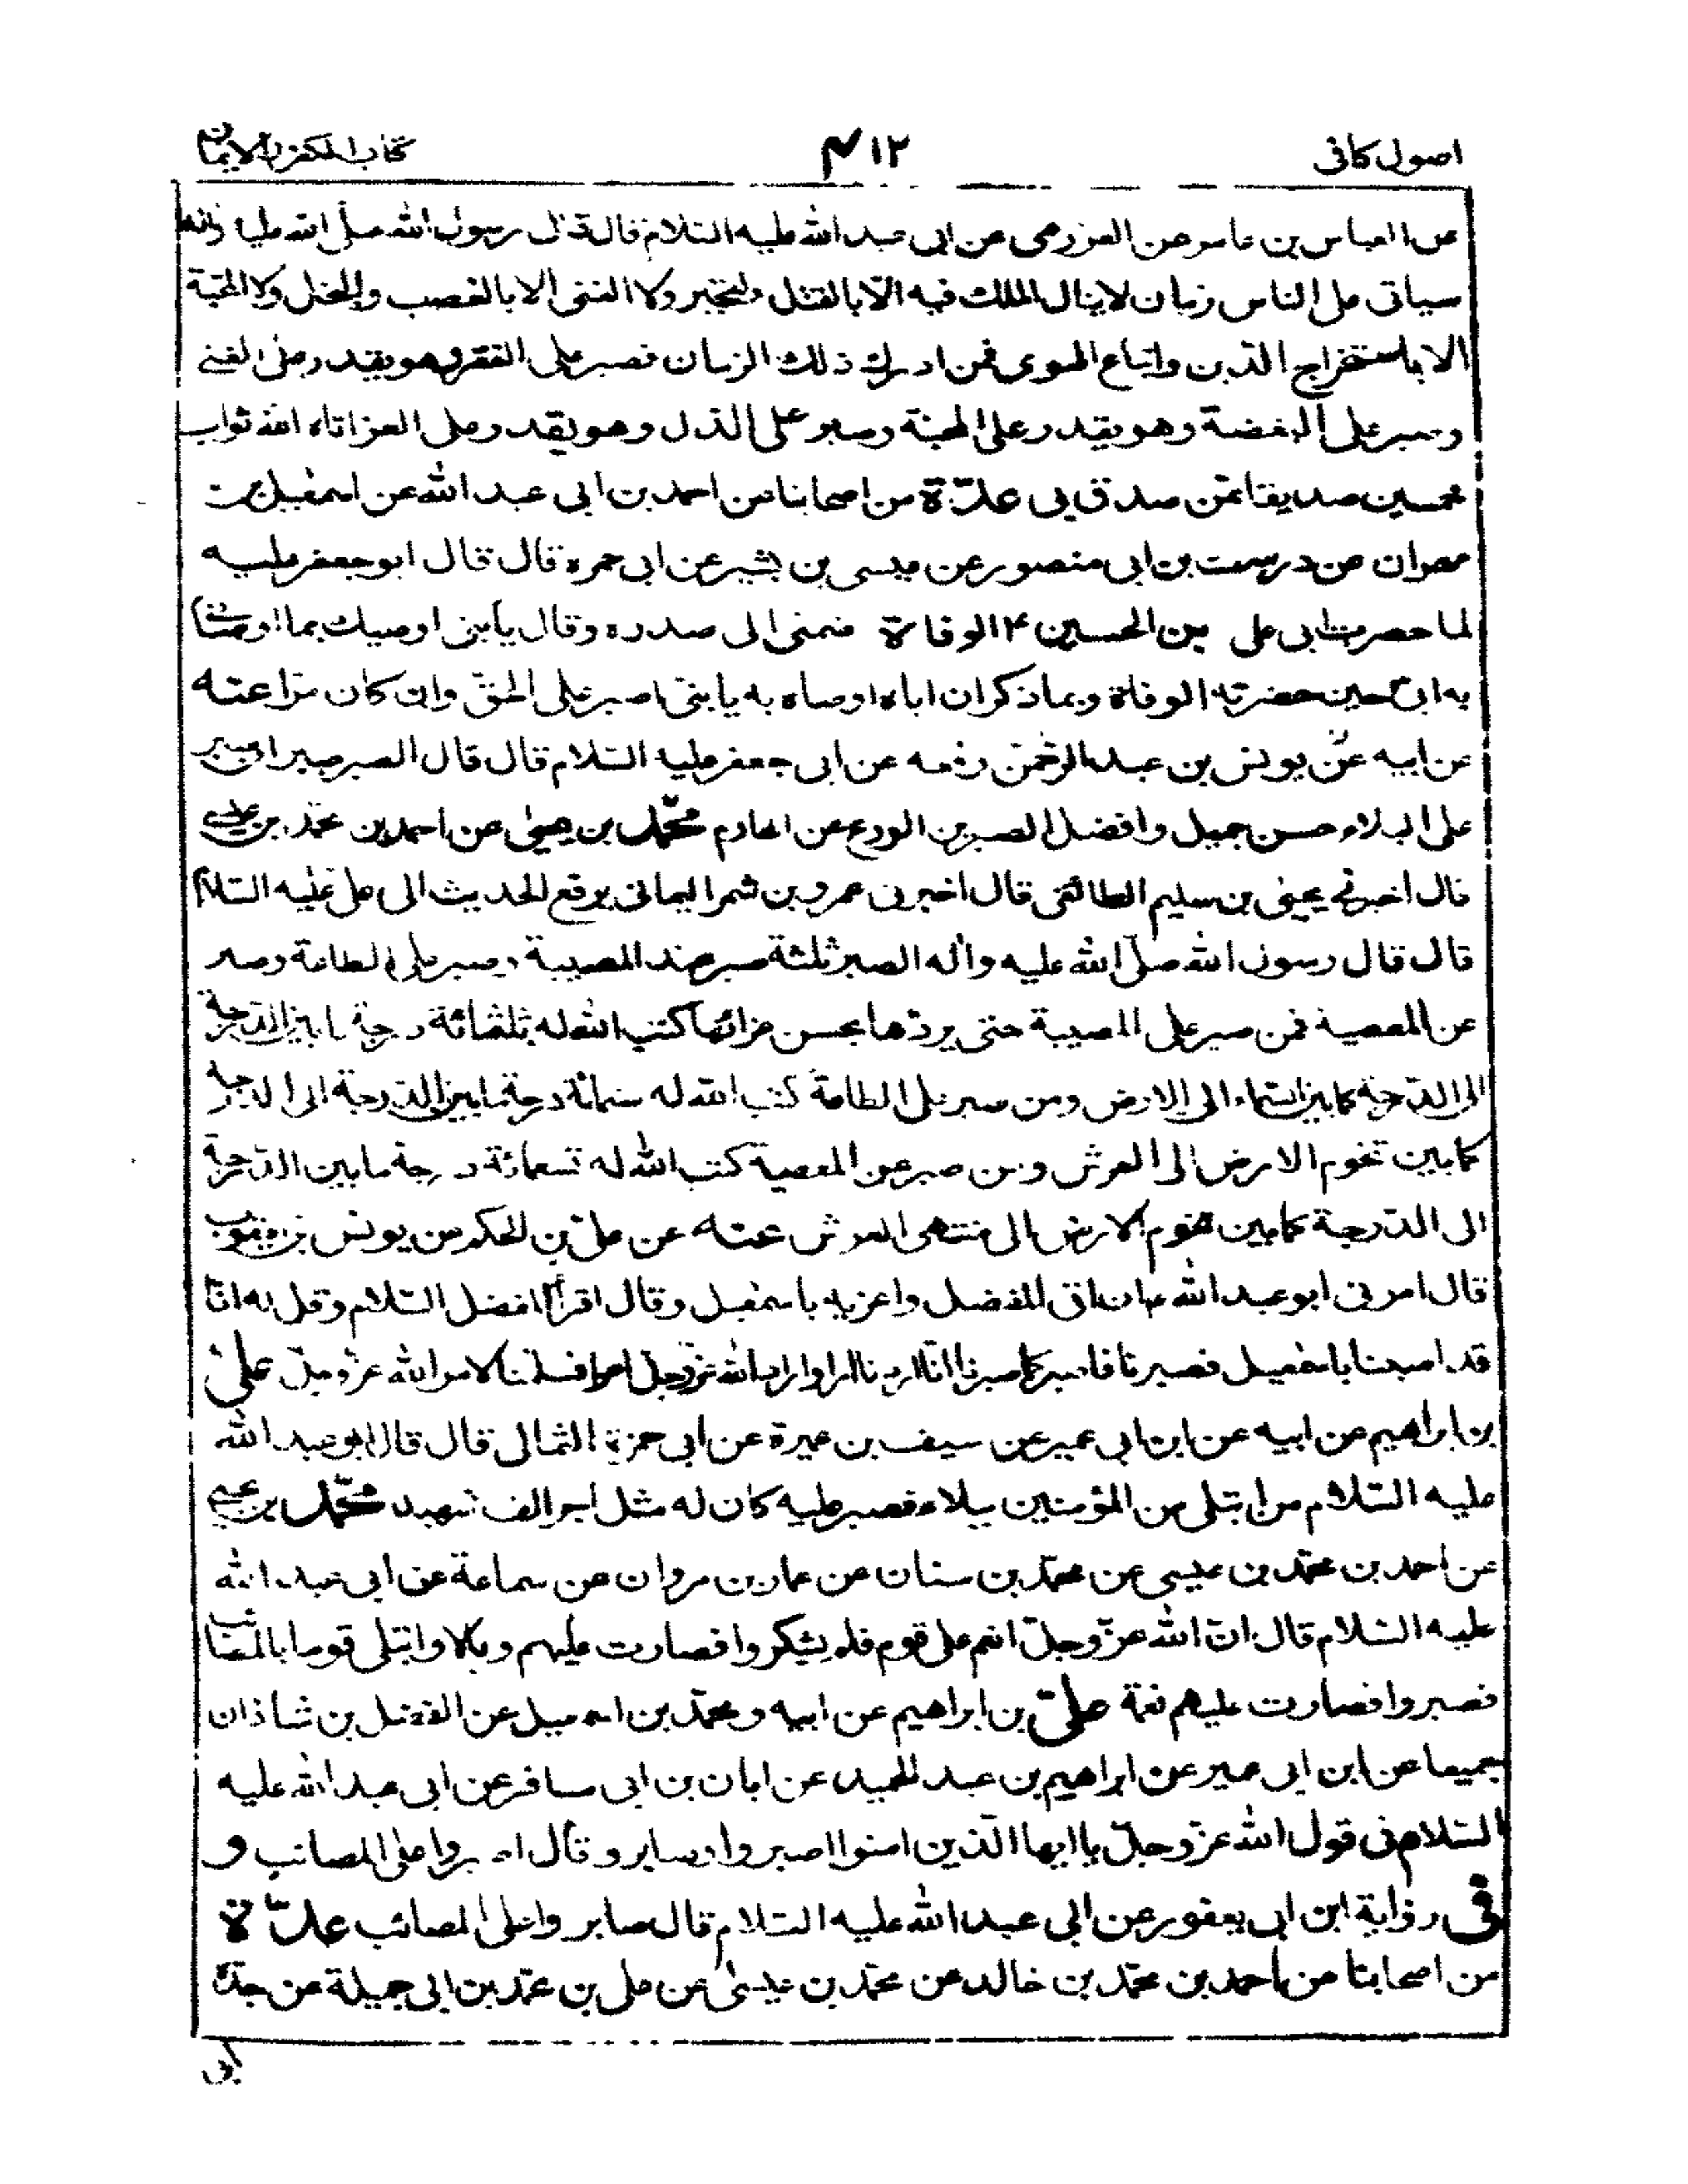 اصول كافى
٤١٢
كتاب الكفر والايمان
عن العباس بن عامر عن العرزمى عن ابى عبد الله عليه السلام قال قال رسول الله صلى الله عليه واله
سياتى على الناس زمان لا ينال الملك فيه الا بالقتل والتجبر ولا الغنى الا بالغصب والبخل ولا المحبة
الا باستخراج الدين واتباع الهوى فمن ادرك ذلك الزمان فصبر على الفقر وهو يقدر على الغنى
وصبر على البغضة وهو يقدر على المحبة وصبر على الذل وهو يقدر على العز اتاه الله ثواب
خمسين صديقا ممن صدق بى عدة من اصحابنا عن احمد بن ابى عبد الله عن اسمعيل بن
مهران عن درست بن ابى منصور عن عيسى بن بشير عن ابى حمزة قال قال ابو جعفر عليه
لما حضرت ابى على بن الحسين ع الوفاة ضمنى الى صدره وقال يا بنى اوصيك بما اوصانى
به ابى حين حضرته الوفاة وبما ذكر ان اباه اوصاه به يا بنى اصبر على الحق وان كان مرا عنه
عن ابيه عن يونس بن عبد الرحمن رفعه عن ابى جعفر عليه السلام قال قال الصبر صبران صبر
على البلاء حسن جميل وافضل الصبرين الورع عن المحارم محمد بن يحيى عن احمد بن محمد بن عيسى
قال اخبرنى يحيى بن سليم الطائفى قال اخبرنى عمرو بن شمر اليمانى يرفع الحديث الى على عليه السلام
قال قال رسول الله صلى الله عليه واله الصبر ثلثة صبر عند المصيبة وصبر على الطاعة وصبر
عن المعصية فمن صبر على المصيبة حتى يردها بحسن عزائها كتب الله له ثلثمائة درجة ما بين الدرجة
الى الدرجة كما بين السماء الى الارض ومن صبر على الطاعة كتب الله له ستمائة درجة ما بين الدرجة الى الدرجة
كما بين تخوم الارض الى العرش ومن صبر عن المعصية كتب الله له تسعمائة درجة ما بين الدرجة
الى الدرجة كما بين تخوم الارض الى منتهى العرش عنه عن على بن الحكم عن يونس بن يعقوب
قال امرنى ابو عبد الله ع ان اتى المفضل واعزيه باسمعيل وقال اقرأ المفضل السلام وقل له انا
قد اصبنا باسمعيل فصبرنا فاصبر كما صبرنا انا اردنا امرا واراد الله عز وجل امرا فسلمنا لامر الله عز وجل على
بن ابراهيم عن ابيه عن ابن ابى عمير عن سيف بن عميرة عن ابى حمزة الثمالى قال قال ابو عبد الله
عليه السلام من ابتلى من المؤمنين ببلاء فصبر عليه كان له مثل اجر الف شهيد محمد بن يحيى
عن احمد بن محمد بن عيسى عن محمد بن سنان عن عمار بن مروان عن سماعة عن ابى عبد الله
عليه السلام قال ان الله عز وجل انعم على قوم فلم يشكروا فصارت عليهم وبالا وابتلى قوما بالمصائب
فصبروا فصارت عليهم نعمة على بن ابراهيم عن ابيه ومحمد بن اسمعيل عن الفضل بن شاذان
جميعا عن ابن ابى عمير عن ابراهيم بن عبد الحميد عن ابان بن ابى مسافر عن ابى عبد الله عليه
السلام فى قول الله عز وجل يا ايها الذين امنوا اصبروا وصابروا قال اصبروا على المصائب و
فى رواية ابن ابى يعفور عن ابى عبد الله عليه السلام قال صابروا على المصائب عدة
من اصحابنا عن احمد بن محمد بن خالد عن محمد بن عيسى عن على بن محمد بن ابى جميلة عن جده
ابى